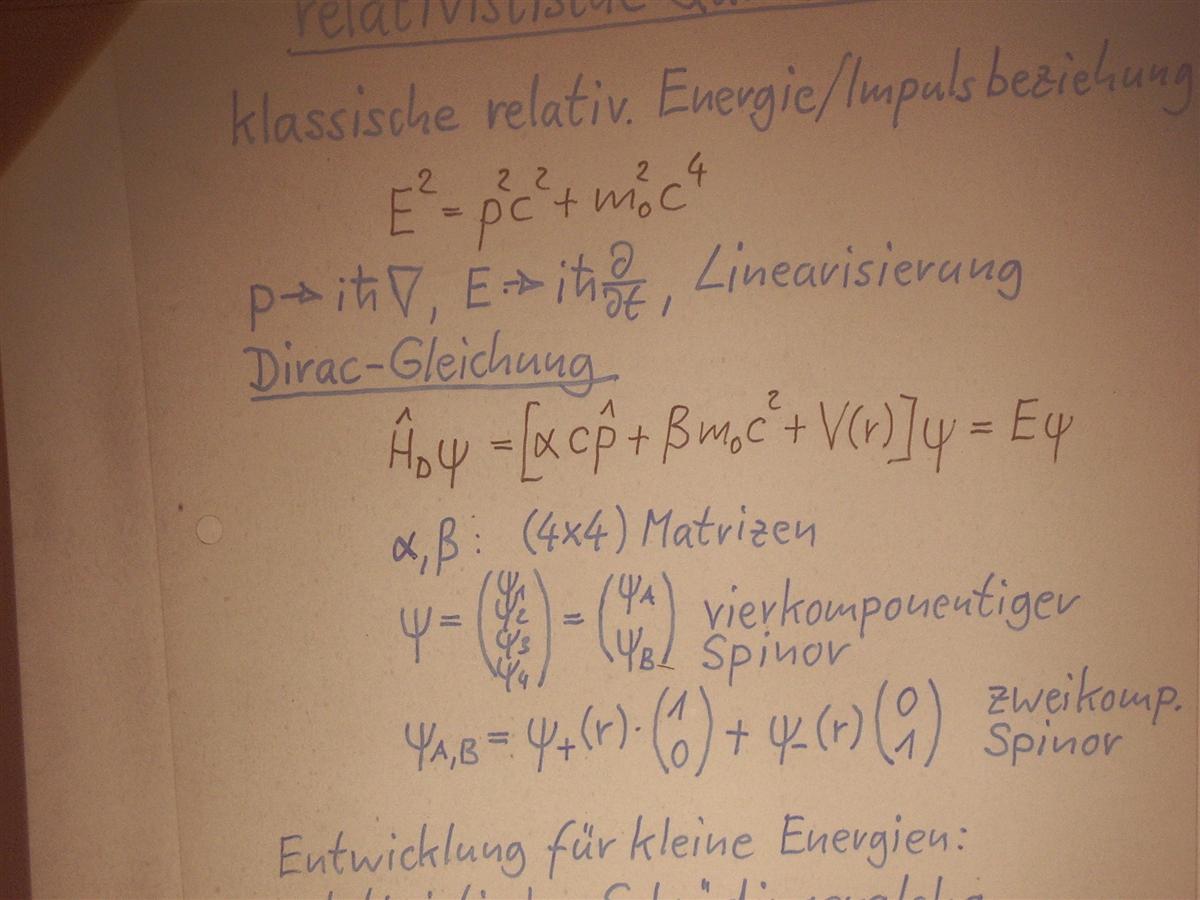 relativistische
klassische relativ. Energie/Impulsbeziehung
E² = p²c² + m₀²c⁴
p → iħ∇, E → iħ ∂/∂t, Linearisierung
Dirac-Gleichung
Ĥ_D ψ = [α c p̂ + β m₀c² + V(r)] ψ = Eψ
α, β: (4x4) Matrizen
ψ = (ψ₁ ψ₂ ψ₃ ψ₄) = (ψ_A ψ_B) vierkomponentiger Spinor
ψ_A,B = ψ₊(r)·(1 0) + ψ₋(r) (0 1) zweikomp. Spinor
Entwicklung für kleine Energien: